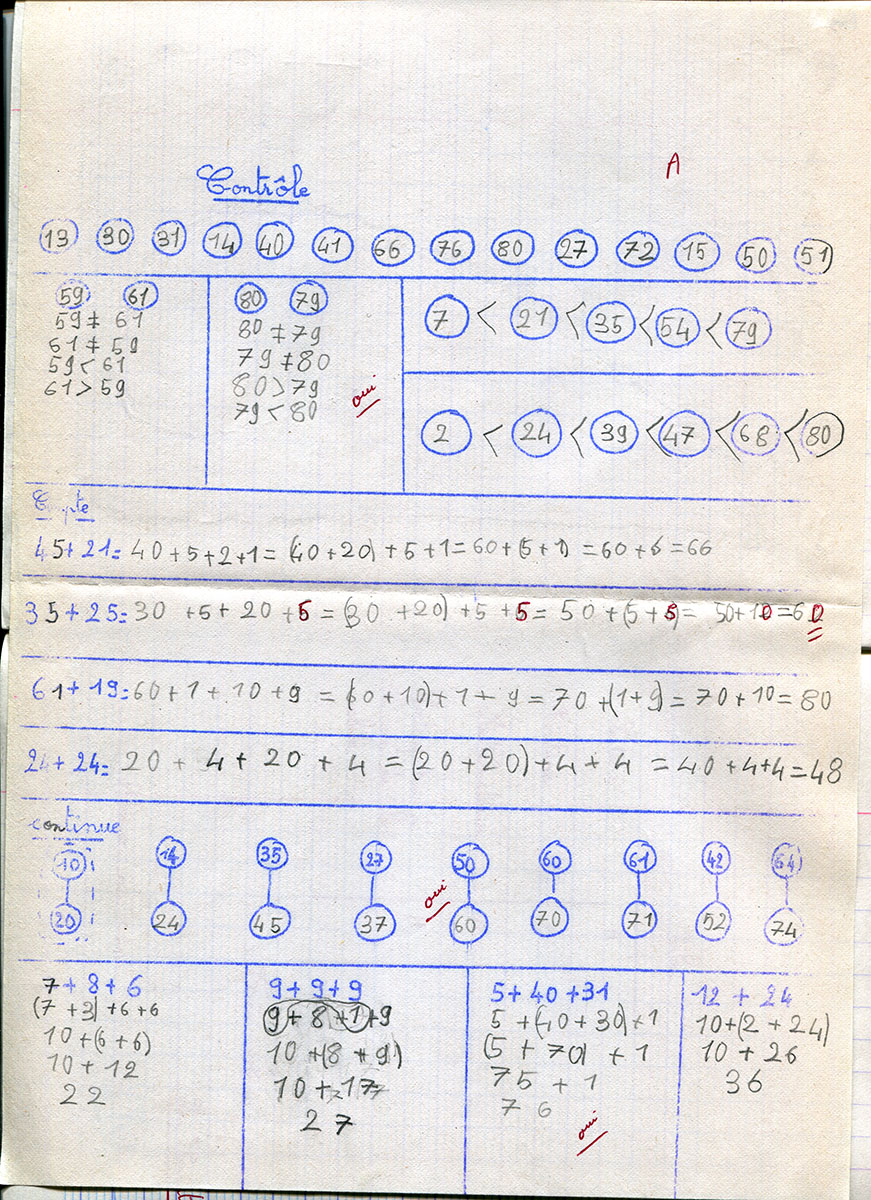 A
Contrôle
13 30 31 14 40 41 66 76 80 27 72 15 50 51
59 61
59 ≠ 61
61 ≠ 59
59 < 61
61 > 59
80 79
80 ≠ 79
79 ≠ 80
80 > 79
79 < 80
oui
7 < 21 < 35 < 54 < 79
2 < 24 < 39 < 47 < 68 < 80
45+21= 40+5+2+1= (40+20)+5+1=60+(5+1)=60+6=66
35+25=30+5+20+5=(30+20)+5+5=50+(5+5)=50+10=60
61+19=60+1+10+9=(60+10)+1+9=70+(1+9)=70+10=80
24+24=20+4+20+4=(20+20)+4+4=40+4+4=48
continue
10 14 35 27 50 60 61 42 64
oui
20 24 45 37 60 70 71 52 74
7+8+6
(7+3)+6+6
10+(6+6)
10+12
22
9+9+9
9+8+1+9
10+(8+9)
10+17
27
5+40+31
5+(40+30)+1
(5+70)+1
75+1
76
oui
12+24
10+(2+24)
10+26
36